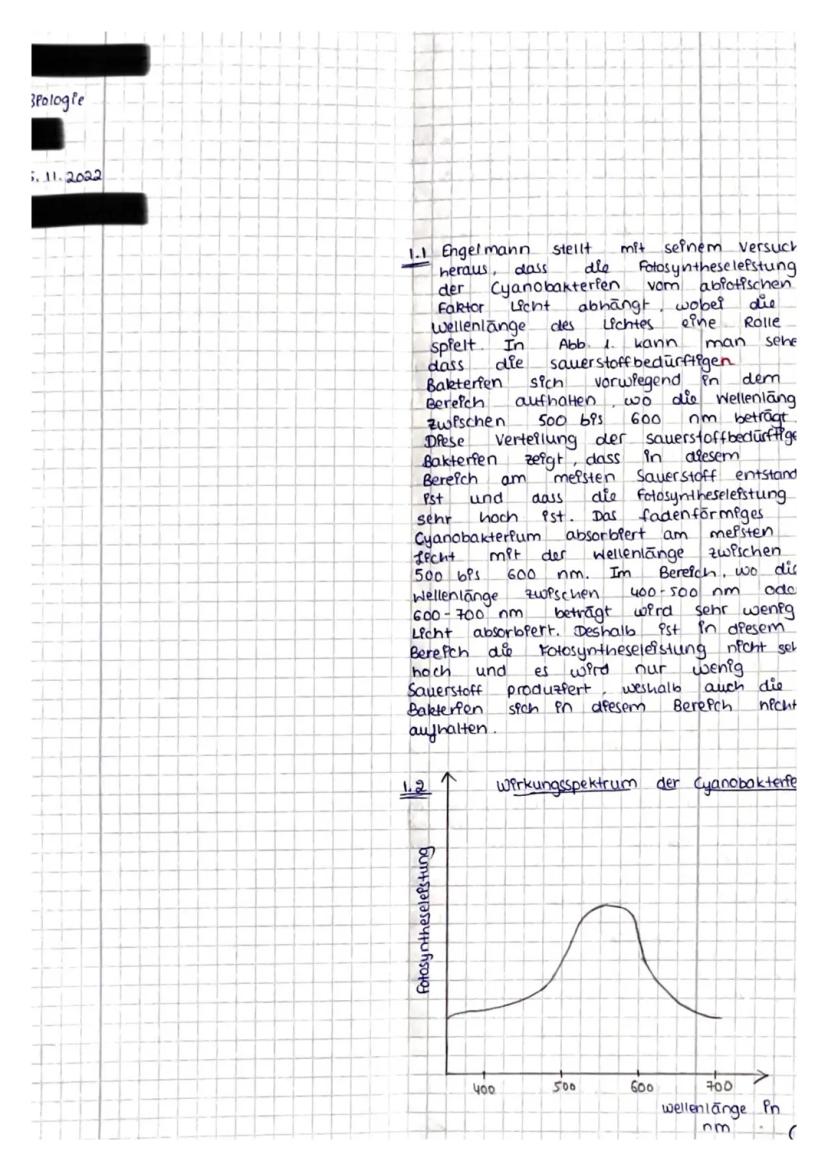 Biologie
5.11.2022
1.1 Engelmann stellt mit seinem Versuch
heraus, dass die Fotosyntheseleistung
der Cyanobakterien vom abiotischen
Faktor Licht abhängt, wobei die
Wellenlänge des Lichtes eine Rolle
spielt. In Abb. 1. kann man sehe
dass die sauerstoffbedürftigen
Bakterien sich vorwiegend in dem
Bereich aufhalten, wo die Wellenläng
zwischen 500 bis 600 nm beträgt.
Diese Verteilung der sauerstoffbedürftige
Bakterien zeigt, dass in diesem
Bereich am meisten Sauerstoff entstand
ist und dass die Fotosyntheseleistung
sehr hoch ist. Das fadenförmiges
Cyanobakterium absorbiert am meisten
Licht mit der Wellenlänge zwischen
500 bis 600 nm. Im Bereich, wo die
Wellenlänge zwischen 400-500 nm ode
600-700 nm beträgt wird sehr wenig
Licht absorbiert. Deshalb ist in diesem
Bereich die Fotosyntheseleistung nicht seh
hoch und es wird nur wenig
Sauerstoff produziert, weshalb auch die
Bakterien sich in diesem Bereich nicht
aufhalten.
1.2 Wirkungsspektrum der Cyanobakterie
Fotosyntheseleistung
400 500 600 700
Wellenlänge in
nm